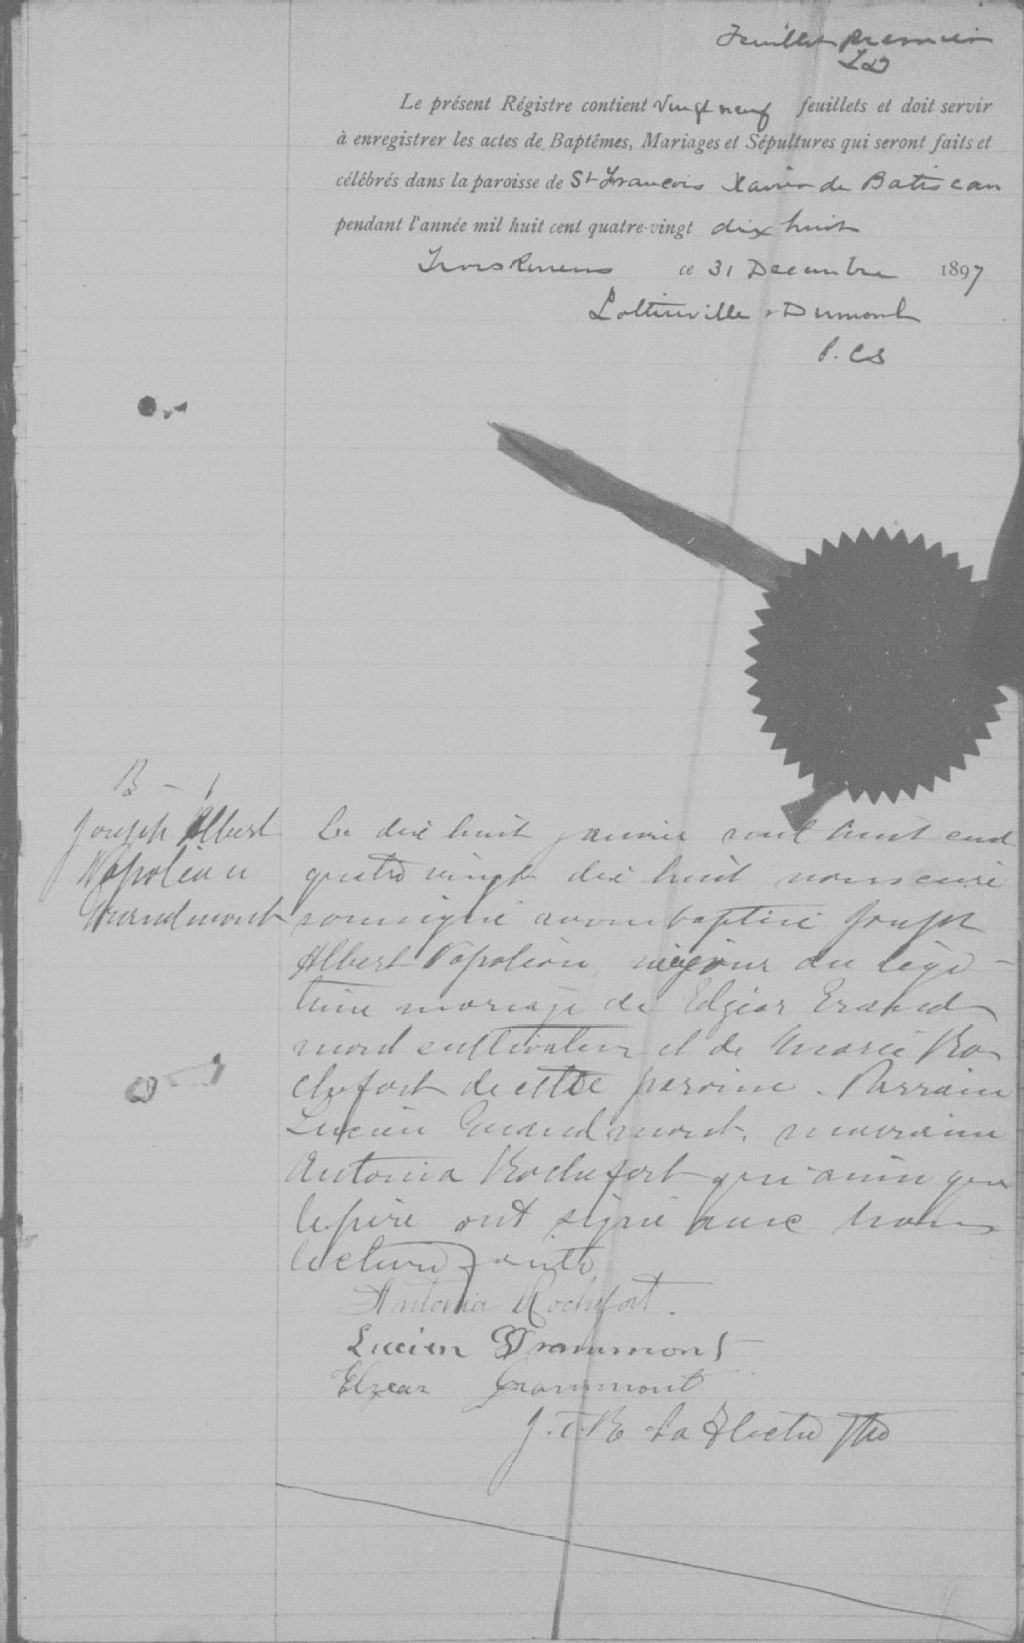 Feuillet premier
LD
Le présent Régistre contient vingt neuf feuillets et doit servir
à enregistrer les actes de Baptêmes, Mariages et Sépultures qui seront faits et
célébrés dans la paroisse de St Francois Xavier de Batiscan
pendant l'année mil huit cent quatre-vingt dix huit
Trois Rivieres ce 31 Decembre 1897
Lottinville & Dumont
P. CS
B - 1
Joseph Albert
Napoléon
Grandmont
Le dix huit janvier mil huit cent
quatre vingt dix huit nous curé
soussigné avons baptisé Joseph
Albert Napoléon, né du légi-
time mariage de Elzéar Grand
mont cultivateur et de Marie Ro
chefort de cette paroisse. Parrain
Lucien Grandmont, marraine
Antonia Rochefort qui ainsi que
le père ont signé avec nous
lecture faite
Antonia Rochefort.
Lucien Grammont
Elzear Grammont
J. T. R. La Fleche Ptre